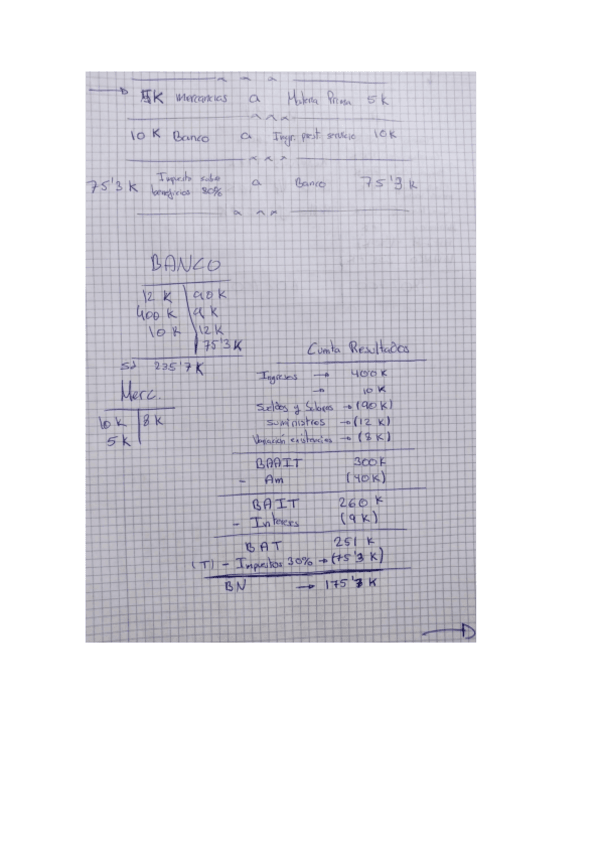 5K Mercancías a Materia Prima 5K
10 K Banco a Ingr. prest. servicio 10K
75'3 K Impuesto sobre beneficios 30% a Banco 75'3 K
BANCO
12 K 90 K
400 K 9 K
10 K 12 K
75'3 K
SD 235'7 K
Merc.
10 K 8 K
5 K
Cuenta Resultados
Ingresos → 400 K
→ 10 K
Sueldos y Salarios → (90 K)
Suministros → (12 K)
Variación existencias → (8 K)
BAAIT 300 K
- Am (40 K)
BAIT 260 K
- Intereses (9 K)
BAT 251 K
(T) - Impuestos 30% → (75'3 K)
BN → 175'7 K